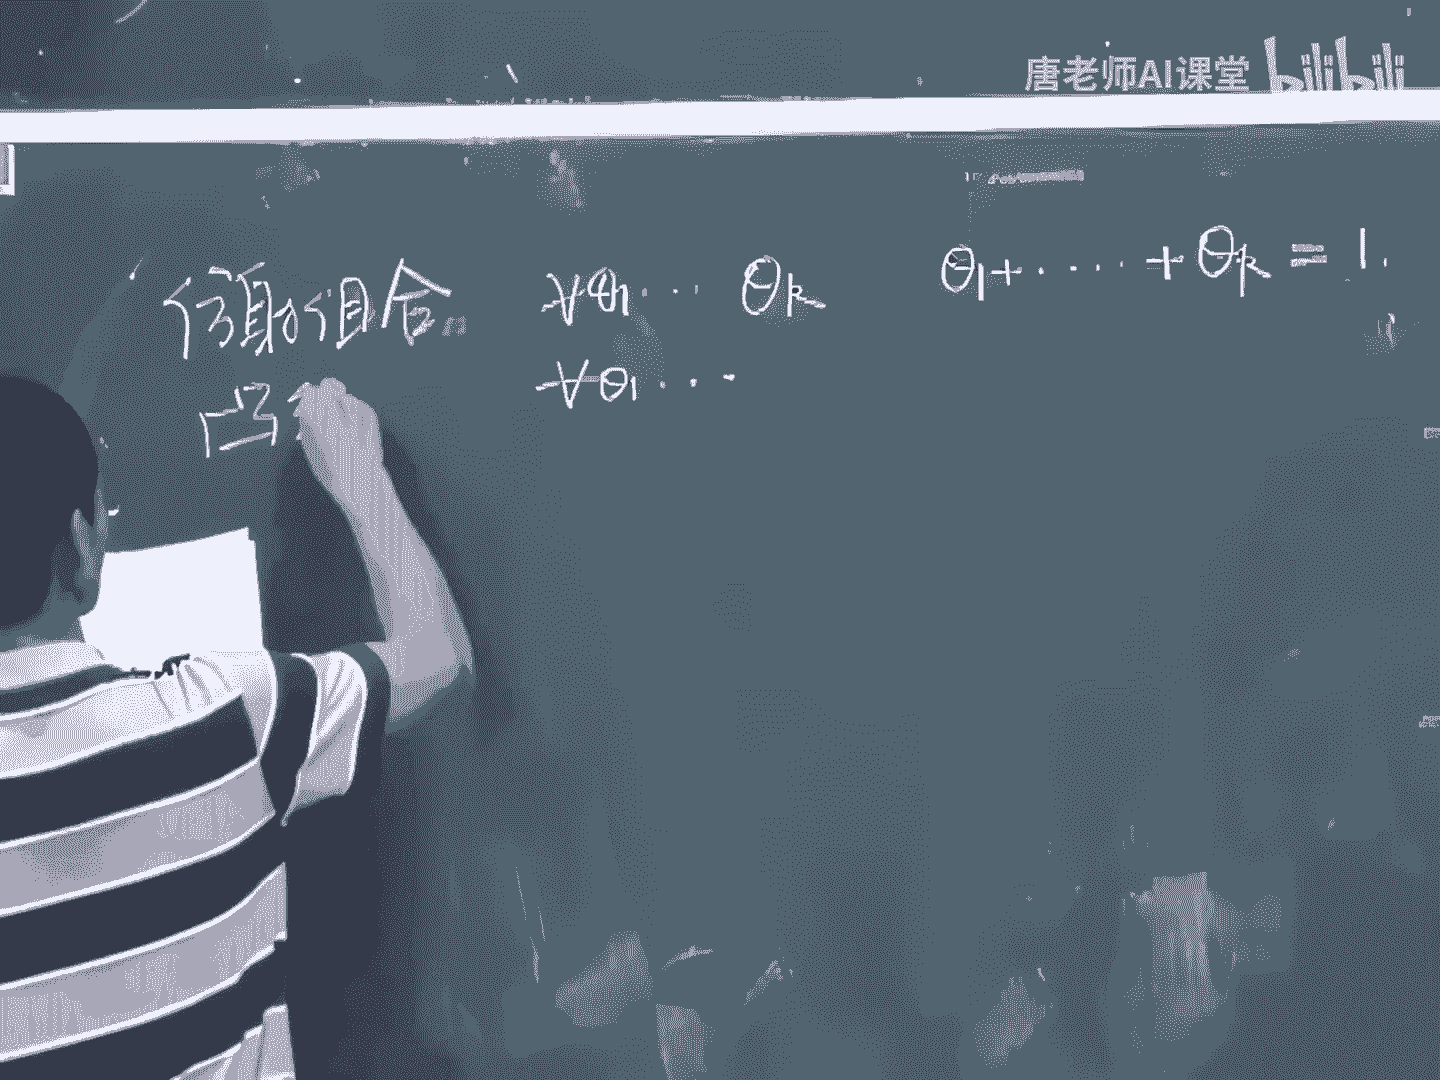 唐老师AI课堂 bilibili
仿射组合 ∀θ1 ... θk θ1+ .... +θk = 1.
凸 ∀θ1 ...